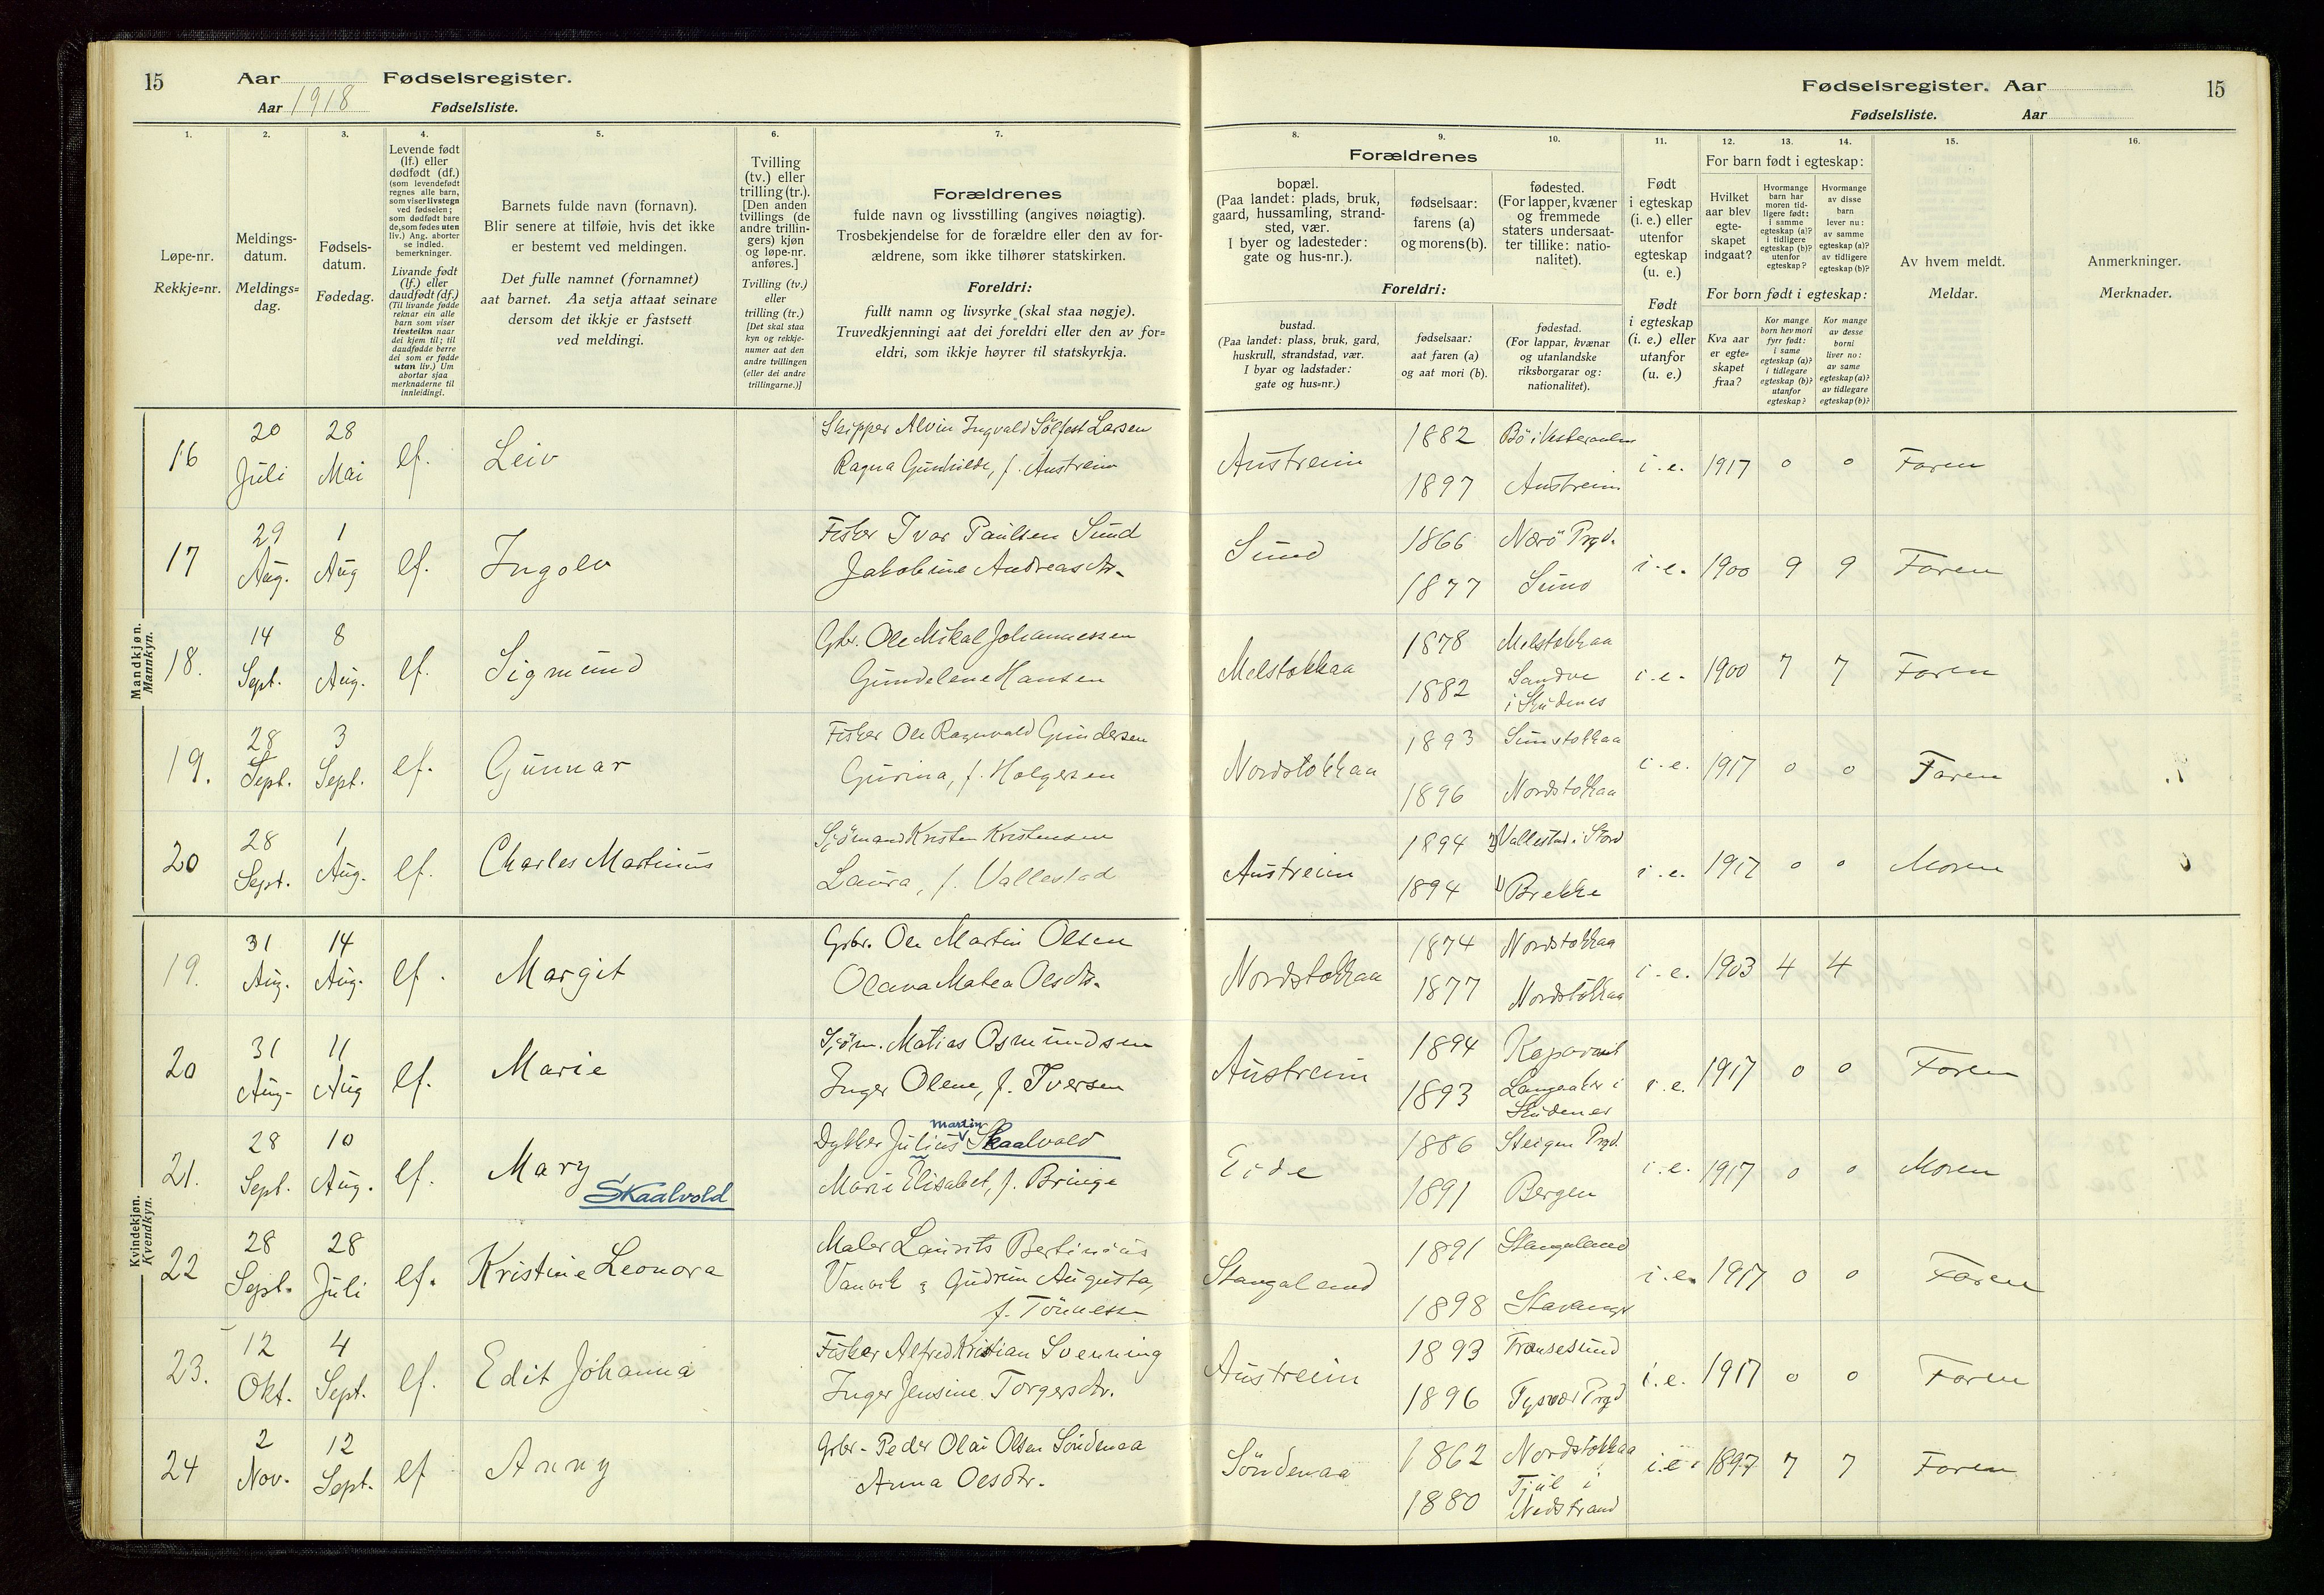 15 Aar Fødselsregister.
Aar 1918 Fødselsliste.
Fødselsregister. Aar 15
Fødselsliste. Aar
1. 2. 3. 4. 5. 6. 7.
8. 9. 10. 11. 12. 13. 14. 15. 16.
Løpe-nr.
Rekkje=nr.
Meldings-
datum.
Meldings=
dag.
Fødsels-
datum.
Fødedag.
Levende født
(lf.) eller
dødfødt (df.)
(som levendefødt
regnes alle barn,
som viser livstegn
ved fødselen;
som dødfødt bare
de, som fødes uten
liv.) Ang. aborter
se indled.
bemerkninger.
Livande født
(lf.) eller
daudfødt (df.)
(Til livande fødde
reknar ein alle
barn som viser
livsteikn naar
dei kjem til; til
daudfødde berre
dei som er fødde
utan liv.) Um
abortar sjaa
merknaderne til
innleidingi.
Barnets fulde navn (fornavn).
Blir senere at tilføie, hvis det ikke
er bestemt ved meldingen.
Det fulle namnet (fornamnet)
aat barnet. Aa setja attaat seinare
dersom det ikkje er fastsett
ved meldingi.
Tvilling
(tv.) eller
trilling (tr.).
[Den anden
tvillings (de
andre trillin-
gers) kjøn
og løpe-nr.
anføres.]
Tvilling (tv.)
eller
trilling (tr.)
[Det skal staa
kyn og rekkje-
numer aat den
andre tvillingen
(eller dei andre
trillingarne.)]
Forældrenes
fulde navn og livsstilling (angives nøiagtig).
Trosbekjendelse for de forældre eller den av for-
ældrene, som ikke tilhører statskirken.
Foreldri:
fullt namn og livsyrke (skal staa nøgje).
Truvedkjenningi aat dei foreldri eller den av for=
eldri, som ikkje høyrer til statskyrkja.
Forældrenes
bopæl.
(Paa landet: plads, bruk,
gaard, hussamling, strand-
sted, vær.
I byer og ladesteder:
gate og hus-nr.).
fødselsaar:
farens (a)
og morens (b).
fødested.
(For lapper, kvæner
og fremmede
staters undersaat-
ter tillike: natio-
nalitet).
Foreldri:
bustad.
(Paa landet: plass, bruk, gard,
huskrull, strandstad, vær.
I byar og ladstader:
gate og hus=nr.)
fødselsaar:
aat faren (a)
og aat mori (b).
fødestad.
(For lappar, kvænar
og utanlandske
riksborgarar og:
nationalitet).
Født
i egteskap
(i. e.) eller
utenfor
egteskap
(u. e.)
Født
i egteskap
(i. e.) eller
utanfor
(u. e.)
For barn født i egteskap:
Hvilket
aar blev
egte-
skapet
indgaat?
Hvormange
barn har
moren tid-
ligere født:
i samme
egteskap (a)?
i tidligere
egteskap (b)?
utenfor
egteskap?
Hvormange
av disse
barn
lever nu:
av samme
egteskap (a)?
av tidligere
egteskap (b)?
For born født i egteskap:
Kva aar
er egte=
skapet
fraa?
Kor mange
born hev mori
fyrr født:
i same
egteskap (a)?
i tidlegare
egteskap (b)?
utanfor
egteskap?
Kor mange
av desse
borni
liver no:
av same
egteskap (a)?
av tidlegare
egteskap (b)?
Av hvem meldt.
Meldar.
Anmerkninger.
Merknader.
Mandkjøn.
Mannkyn.
16 20 Juli 28 Mai lf. Leiv Skipper Alvin Ingvald Sølfest Larsen
Ragna Gunhilde, f. Austreim
Austreim 1882 Bö i Vesteraalen
1897 Austreim i.e. 1917 0 0 Faren
17 29 Aug. 1 Aug lf. Ingolv Fisker Ivar Paulsen Sund
Jakobine Andreasdtr.
Sund 1866 Nærö Prgd.
1877 Sund i.e. 1900 9 9 Faren
18. 14 Sept. 8 Aug. lf. Sigmund Gbr. Ole Mikal Johannessen
Gundelene Hansen
Melstokkaa 1878 Melstokkaa
1882 Sandve
i Skudenes i.e. 1900 7 7 Faren
19. 28 Sept. 3 Sept. lf. Gunnar Fisker Ole Ragnvald Gundersen
Gurina, f. Holgersen
Nordstokkaa 1893 Sunstokkaa
1896 Nordstokkaa i.e. 1917 0 0 Faren
20 28 Sept. 1 Aug. lf. Charles Martinus Sjömand Kristen Kristensen
Laura, f. Vallestad
Austreim 1894 2) Vallestad i Stord
1894 1) Brekke i.e. 1917 0 0 Moren
Kvindekjøn.
Kvendkyn.
19. 31 Aug. 14 Aug. lf. Margit Grbr. Ole Martin Olsen
Olava Matea Olsdtr.
Nordstokkaa 1874 Nordstokkaa
1877 Nordstokkaa i.e. 1903 4 4
20 31 Aug. 11 Aug lf. Marie Sjöm. Matias Osmundsen
Inger Olene, f. Iversen
Austreim 1894
1893 Langaaker i
Skudenes i.e. 1917 0 0 Faren
21. 28 Sept. 10 Aug. lf. Mary Skaalvold Dykker Julius Martin Skaalvold
Marie Elisabet, f. Bringe
Eide 1886 Steigen Prgd.
1891 Bergen i.e. 1917 0 0 Moren
22 28 Sept. 28 Juli lf. Kristine Leonora Maler Laurits Bertinius
Vanvik & Gudrun Augusta,
f. Tönnesen
Stangeland 1891 Stangeland
1898 Stavanger i.e. 1917 0 0 Faren
23. 12 Okt. 4 Sept. lf. Edit Johanna Fisker Alfred Kristian Svenning
Inger Jensine Torgersdtr.
Austreim 1893
1896 Tysvær Prgd i.e. 1917 0 0 Faren
24 2 Nov. 12 Sept. lf Anny Grbr. Peder Olai Olsen Söndenaa
Anna Olsdtr.
Söndenaa 1862 Nordstokkaa
1880 Tjul i
Nedstrand i.e. 1897 7 7 Faren